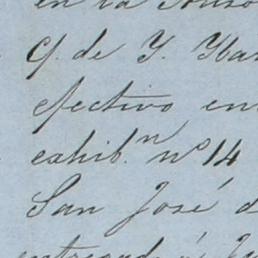 en la
C/. de Y. Ybar
efectivo en
exhib.n nº 14
San José d
entregado á